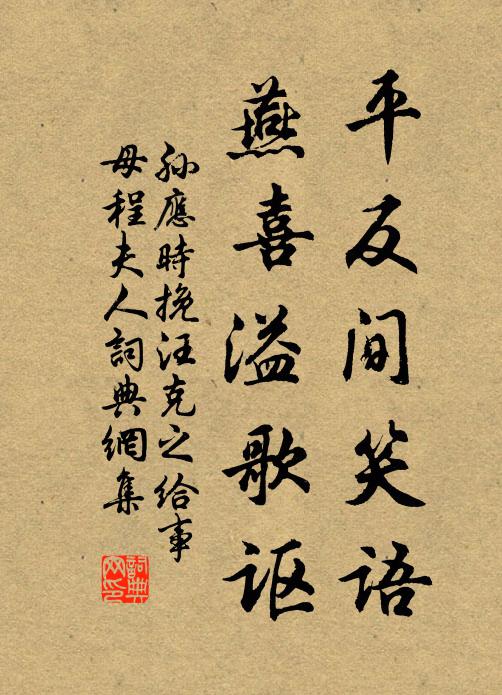 平反間笑語
燕喜溢歌讴
孫應時挽汪克之給事
母程夫人詞典網集
詞典
网印